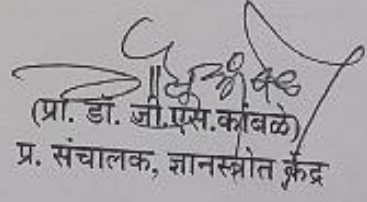 (प्रा. डॉ. जी.एस.कांबळे)
प्र. संचालक, ज्ञानस्त्रोत केंद्र